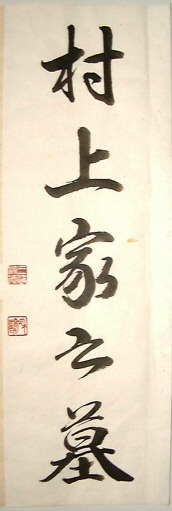 村上家之墓